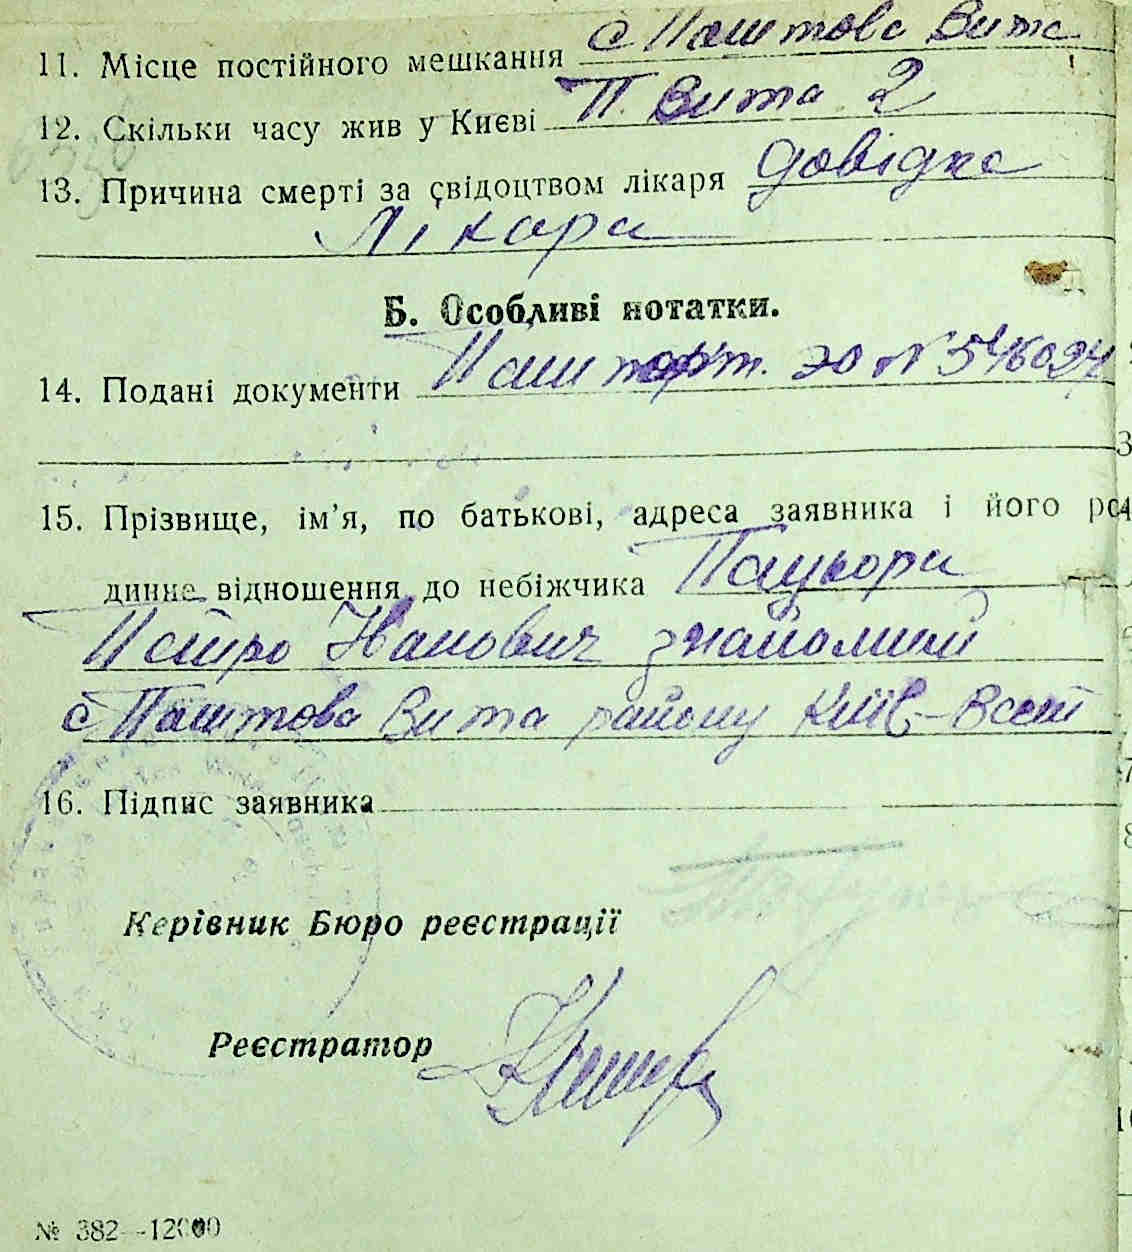 11. Місце постійного мешкання с Паштова Вита
12. Скільки часу жив у Києві П. Вита 2
13. Причина смерті за свідоцтвом лікаря довідка
Лікара
Б. Особливі нотатки.
14. Подані документи Пашпорт. ЭО N 546024
15. Прізвище, ім’я, по батькові, адреса заявника і його ро-
динне відношення до небіжчика Пацьора
Петро Иванович знайомий
с Паштова Вита району Київ-
16. Підпис заявника
Керівник Бюро реєстрації
Реєстратор
№ 382--12000